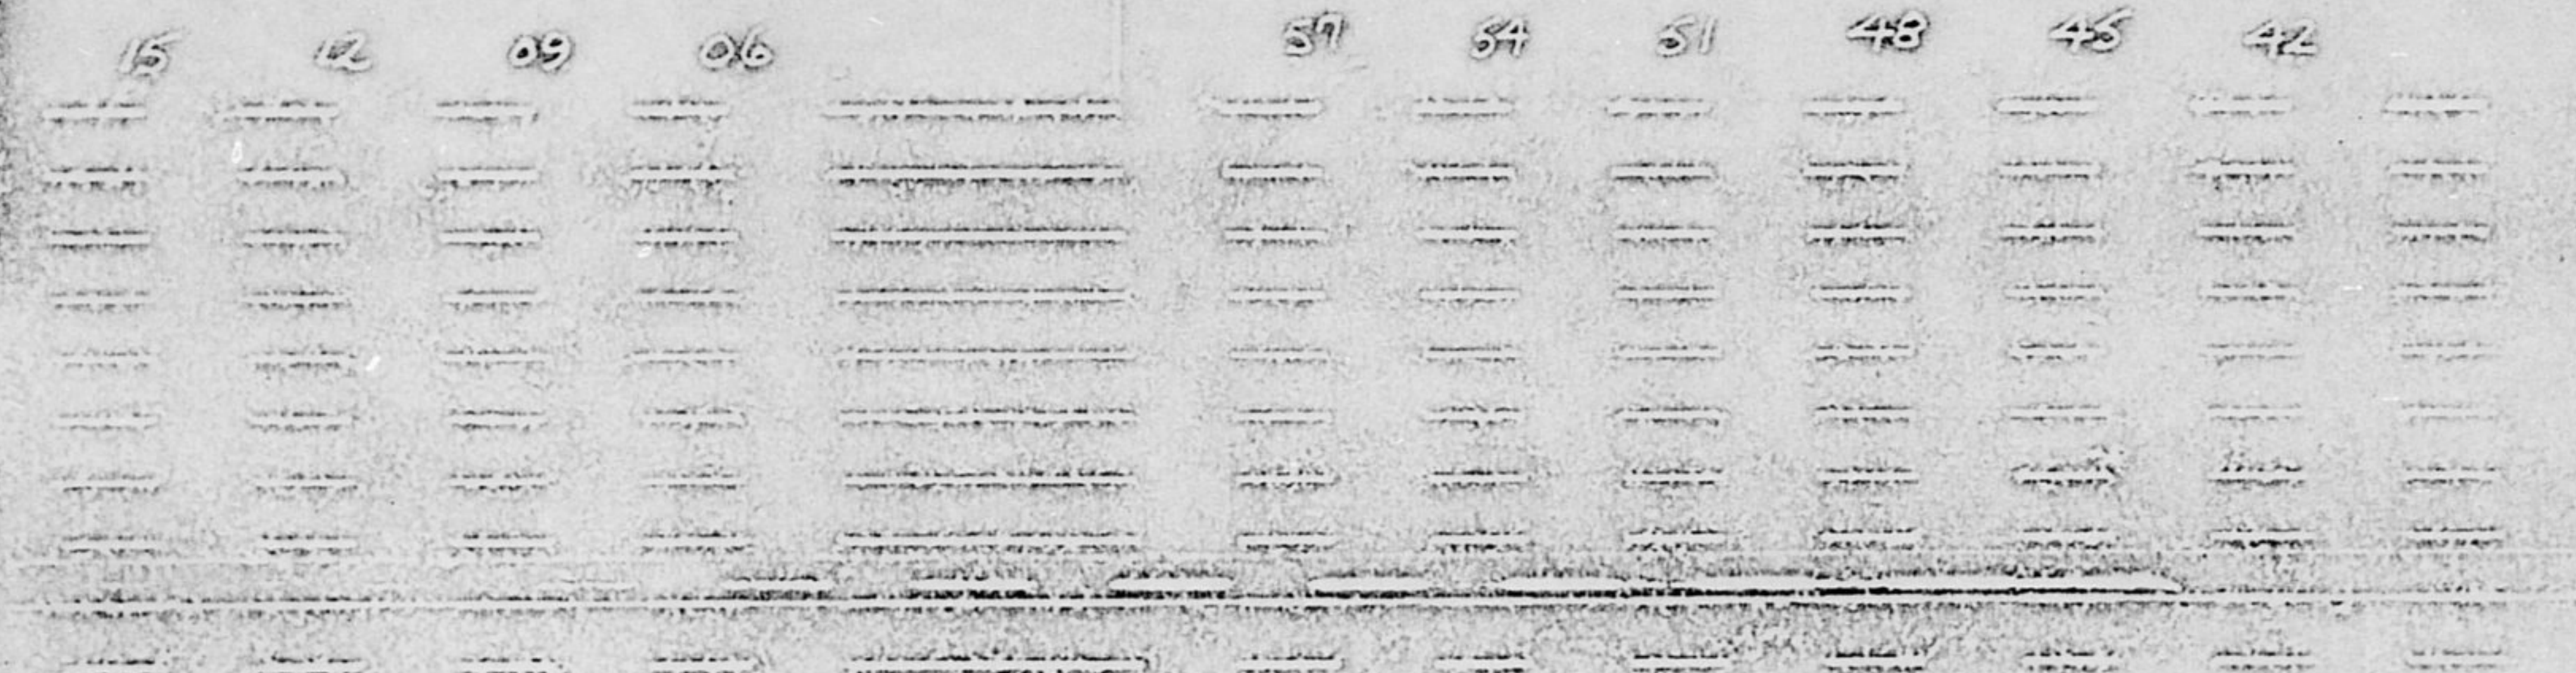 15 12 09 06 57 54 51 48 45 42